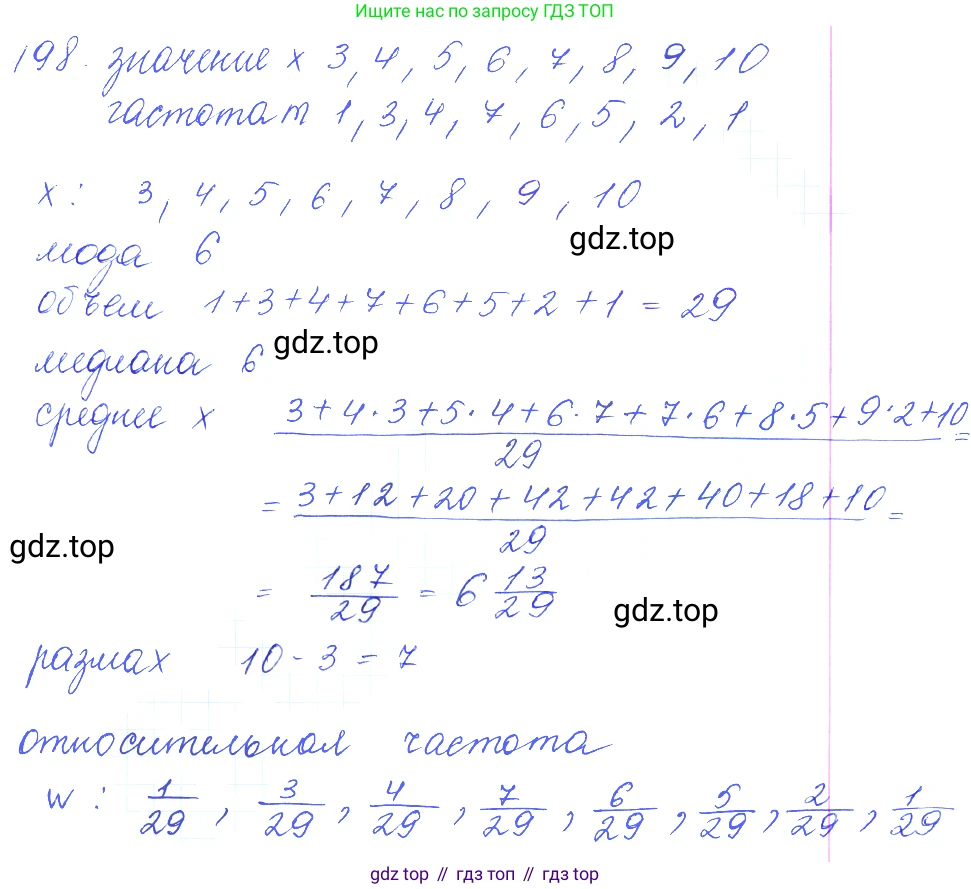 Ищите нас по запросу ГДЗ ТОП
198. значение x 3, 4, 5, 6, 7, 8, 9, 10
частота m 1, 3, 4, 7, 6, 5, 2, 1
x: 3, 4, 5, 6, 7, 8, 9, 10
gdz.top
мода 6
объем 1+3+4+7+6+5+2+1 = 29
gdz.top
медиана 6
среднее x (3+4·3+5·4+6·7+7·6+8·5+9·2+10)/29 =
= (3+12+20+42+42+40+18+10)/29 =
gdz.top
= 187/29 = 6 13/29
gdz.top
размах 10 - 3 = 7
относительная частота
w: 1/29, 3/29, 4/29, 7/29, 6/29, 5/29, 2/29, 1/29
gdz top // гдз топ // gdz top